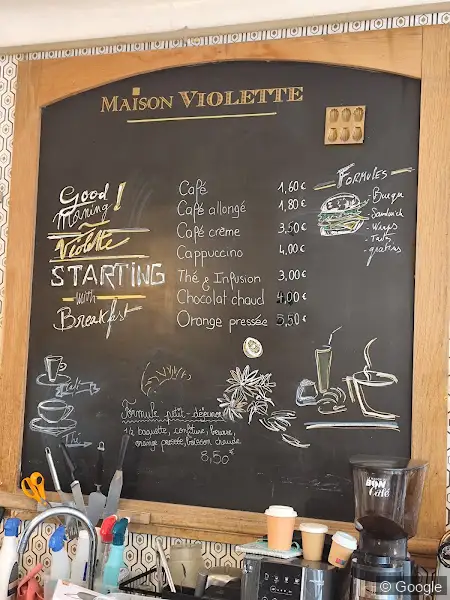 MAISON VIOLETTE
Good
Morning !
Violette
STARTING
with
Breakfast
Café 1,60€
Café allongé 1,80€
Café crème 3,50€
Cappuccino 4,00€
Thé & Infusion 3,00€
Chocolat chaud 4,00€
Orange pressée 5,50€
FORMULES
- Burger
- Sandwich
- Wraps
- gratins
Formule petit-déjeuner
1/2 baguette, confiture, beurre,
orange pressée, boisson chaude
8,50€
Thé
BON
Café
© Google